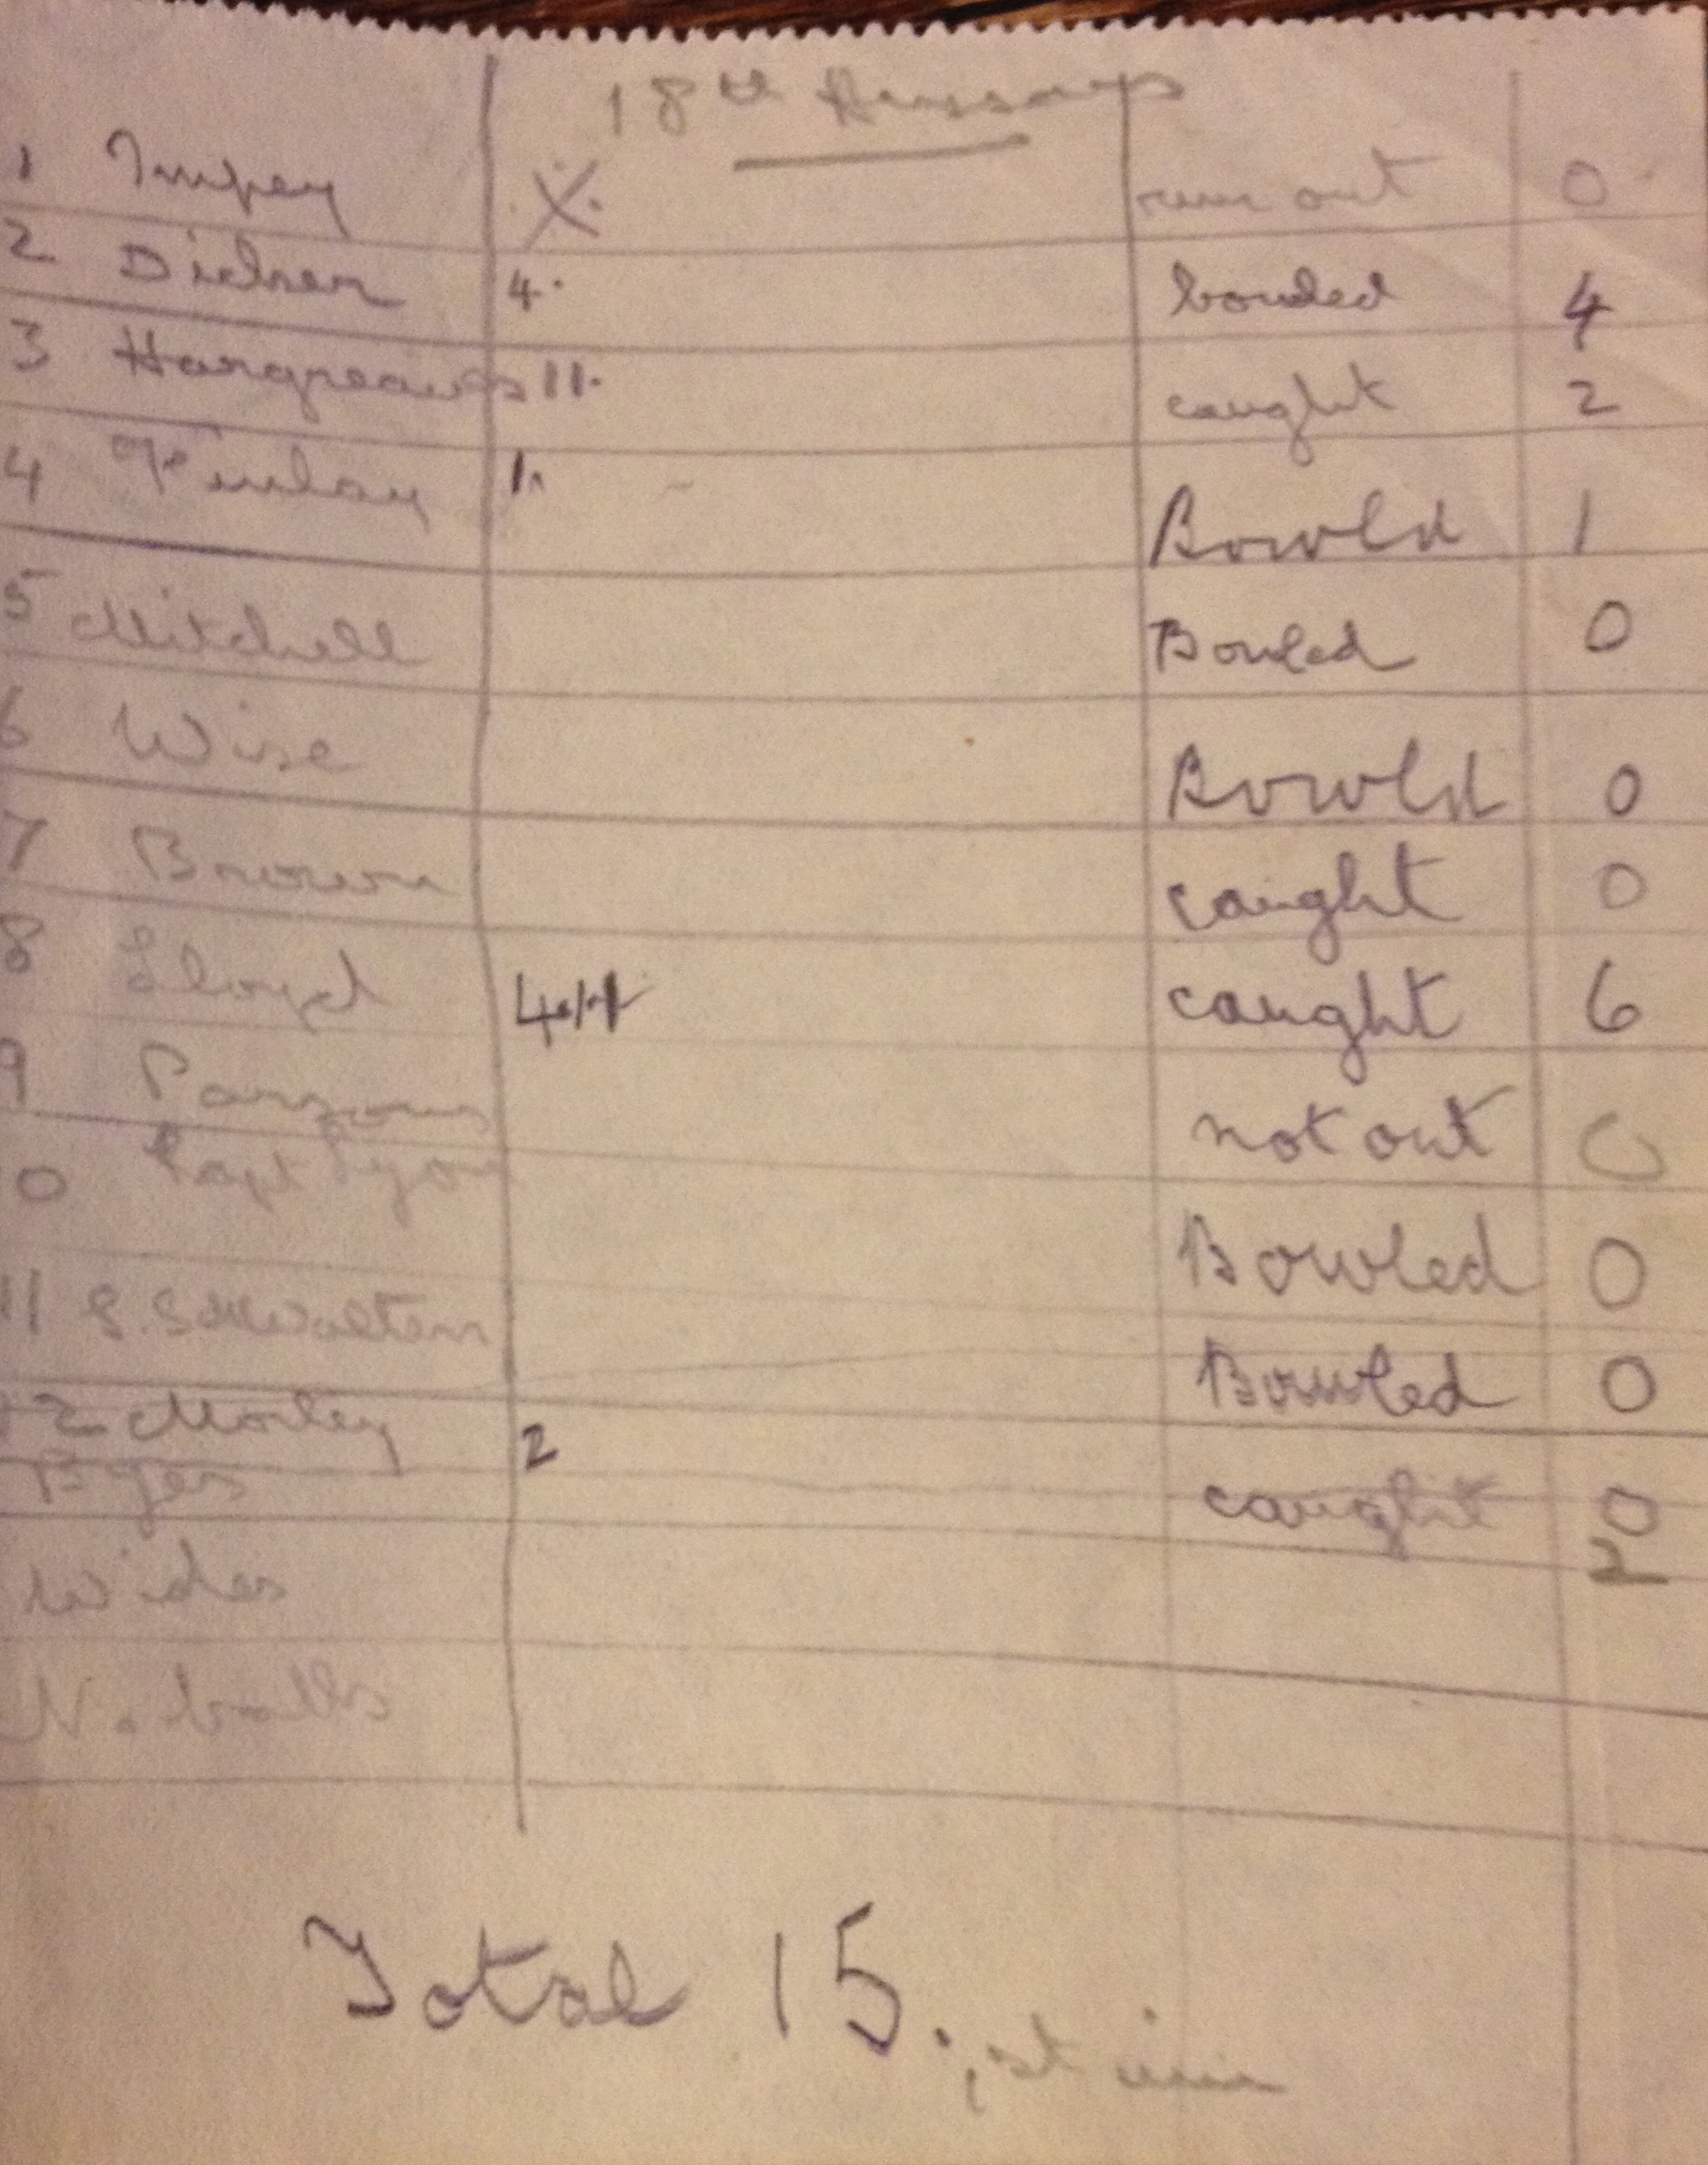 18th Hussars
1 Impey X. run out 0
2 Dickson 4. bowled 4
3 Hargreaves 11. caught 2
4 Finlay 1. Bowld 1
5 Mitchell Bowled 0
6 Wise Bowld 0
7 Brown caught 0
8 Lloyd 4.1.1 caught 6
9 Parsons not out 0
10 Capt Lyon Bowled 0
11 Bowled 0
12 Morley caught 0
Byes 2 2
Wides
N. balls
Total 15. 1st inn